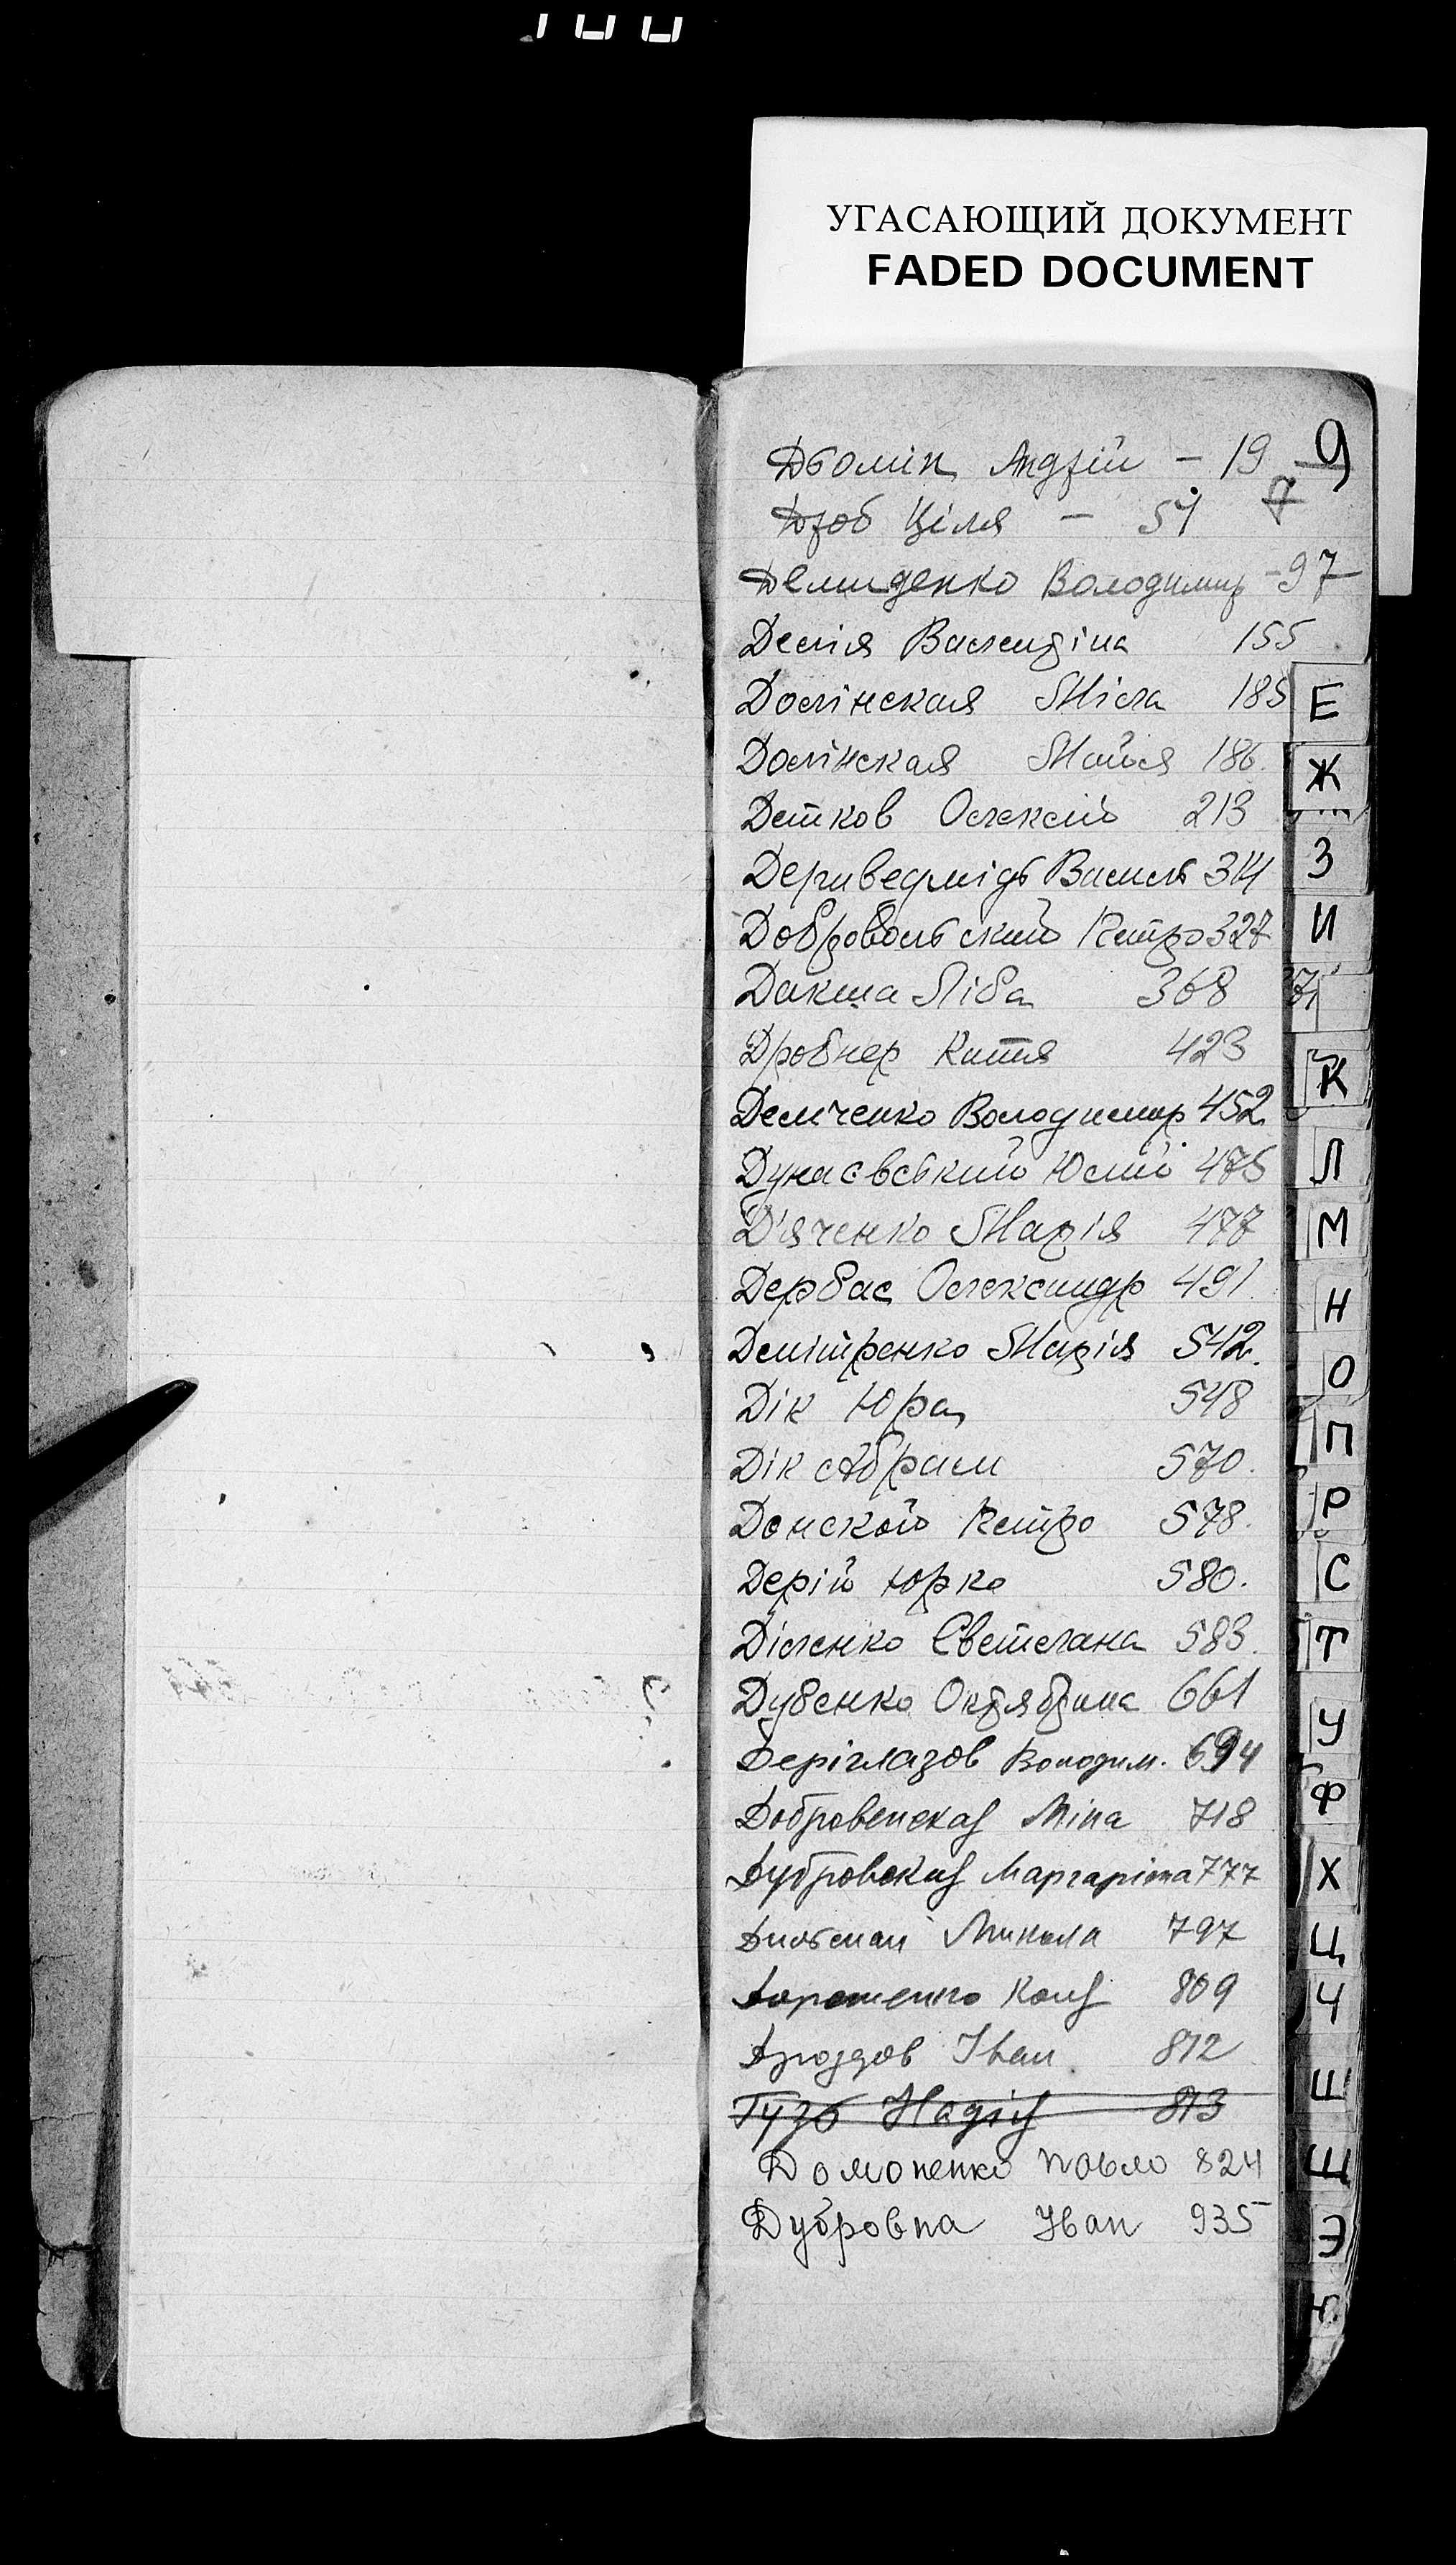 УГАСАЮЩИЙ ДОКУМЕНТ
FADED DOCUMENT
9
Дьомін Андрій - 19
7
Дроб Ціля - 54
Демиденко Володимир - 97
Демія Валентіна 155
Долінская Міла 185
Долінская Майя 186.
Детков Олексій 213
Дериведмідь Василь 314
Добровольский Петро 327
Дакша Ліба 368
Дробнер Катя 423
Демченко Володимир 452
Дунаєвський Юлій 475
Д'яченко Марія 477
Дербас Олександр 491
Демітренко Марія 542.
Дік Юра 548
Дік Абрам 570.
Донской Петро 578.
Дерій Юрко 580.
Діденко Светлана 583.
Дубенко Октябрина 661
Деріглазов Володим. 694
Добровенская Міна 718
Дубровская Маргаріта 777
Микола 797
Дорошенко Коля 809
Дроздов Іван 812
Гузь Надія 813
Домоненко Павло 824
Дубровна Іван 935
Е
Ж
З
И
К
Л
М
Н
О
П
Р
С
Т
У
Ф
Х
Ц
Ч
Ш
Щ
Э
Ю